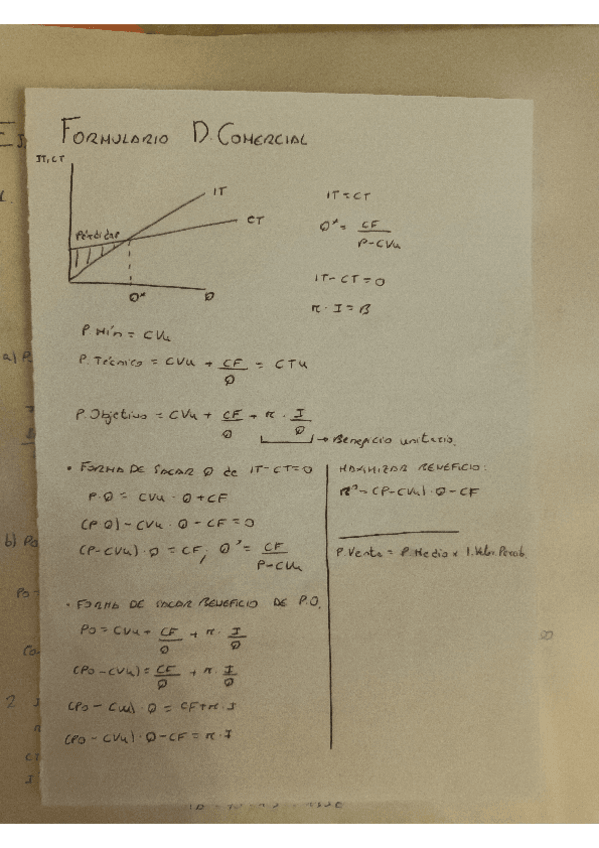 FORMULARIO D. COMERCIAL
IT, CT
IT
CT
Pérdidas
Q*
Q
IT = CT
Q* = CF / P-CVu
IT - CT = 0
r · I = B
P. Mín = CVu
P. Técnico = CVu + CF/Q = CTu
P. Objetivo = CVu + CF/Q + r · I/Q
→ Beneficio unitario.
• FORMA DE SACAR Q de IT-CT=0
P·Q = CVu · Q + CF
(P·Q) - CVu · Q - CF = 0
(P-CVu) · Q = CF; Q* = CF / P-CVu
• FORMA DE SACAR BENEFICIO DE P.O.
PO = CVu + CF/Q + r · I/Q
(PO - CVu) = CF/Q + r · I/Q
(PO - CVu) · Q = CF + r · I
(PO - CVu) · Q - CF = r · I
MAXIMIZAR BENEFICIO:
(P-CVu) · Q - CF
P. Venta = P. Medio × I. Valor. Percib.
a)
b) Po
Po
Co
2